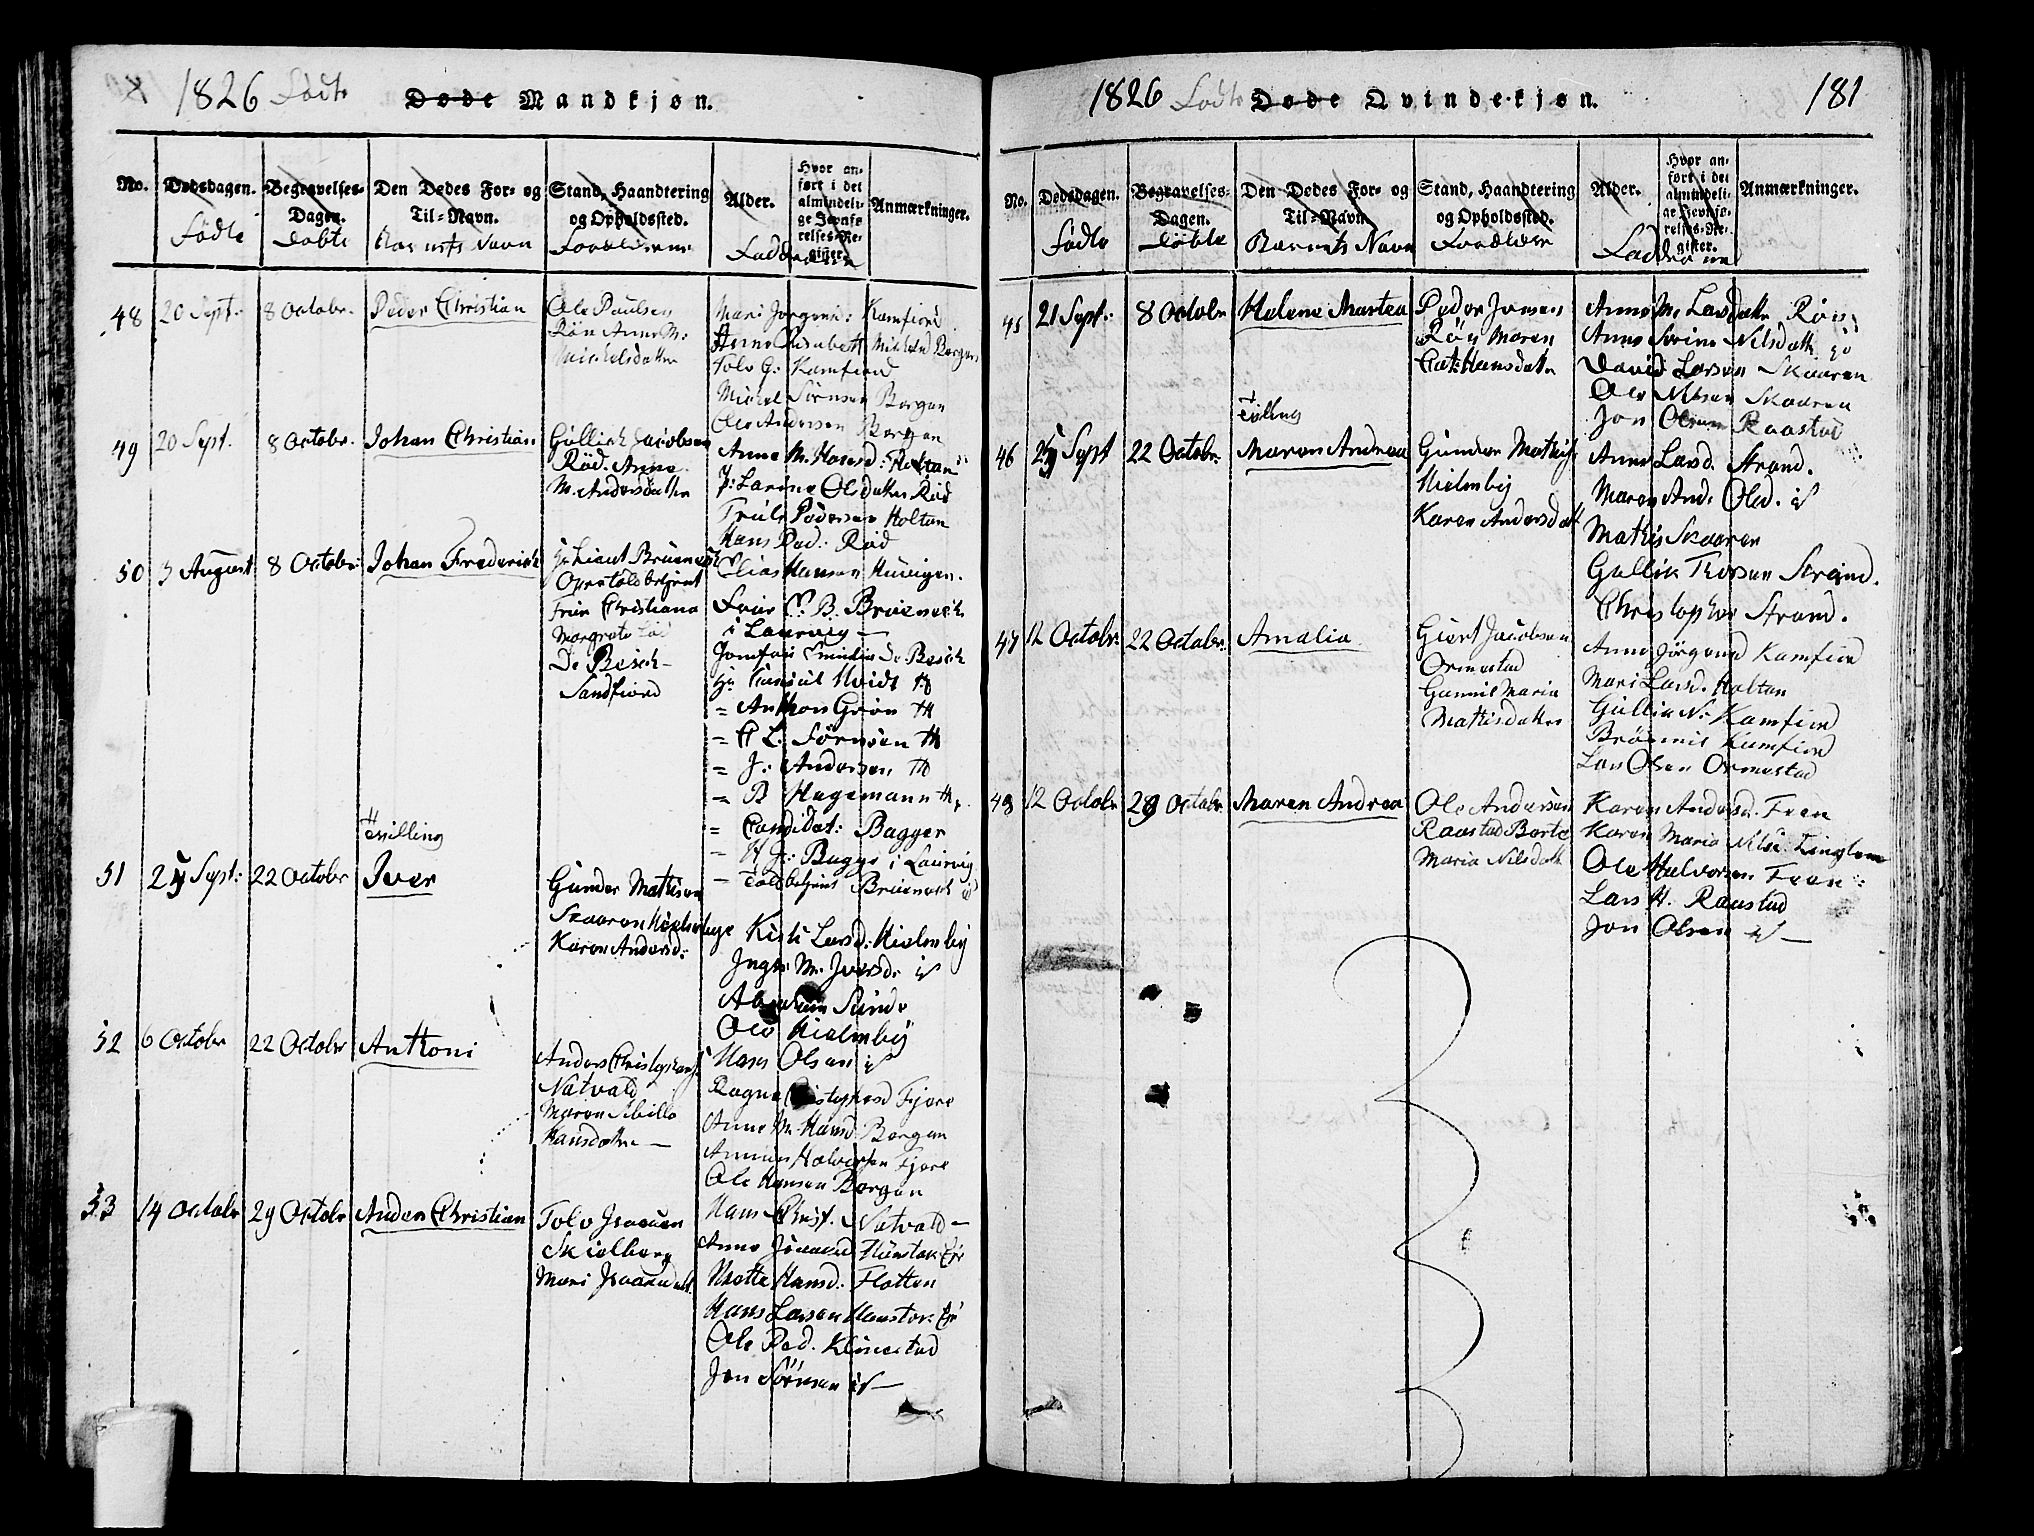 1826 Födte Døde Mandkjøn.
No.
Dødsdagen.
Födte
Begravelses-
Dagen.
Döbte
Den Dødes For- og
Til-Navn.
Barnets Navn
Stand, Haandtering
og Opholdssted.
Forældrene
Alder.
Faddrene
Hvor an-
ført i det
almindeli-
ge Jevnfø-
relses-Re-
gister.
Anmærkninger.
48 20 Sept: 8 Octobr. Peder Christian
Ole Paulsen
Røn Anne M:
Mickelsdatter
Mari Jörgens: Kamfiord
Anne Elisabeth Mickelsd Bergan
Tolv G: Kamfiord
Mickel Sörnsen Bergan
Ole Andersen Bergan
49 20 Sept. 8 Octobr. Johan Christian
Gullich Jacobsen
Röd. Anne
M. Andersdatter
Anne M. Hansd: Holtan
J: Larine Olsdatter Röd
Truls Pedersen Holtan
Hans Ped: Röd
Elias Hansen Huvigen.
50 5 August 8 Octobr: Johan Frederich
Hr Lieut Brüenech
Opr Toldbetjent
Frue Christiana
Margrete Föd
De Besch-
Sandfiord
Frue C. B. Brüenech
i Laurvig —
Jomfru Emilia De Besch
Hr Consul Hvidt
= Anthon Grön
= C L. Sörnsen
= J: Andersen
= B Hagemann
= Candidat: Bagger
- H J: Bugge i Laurvig
- Toldbetjent Brüenech
Tvilling
51 29 Sept: 22 Octobr Iver
Gunder Mathisen
Skaaren Hielmbye
Karen Andersd:
Kisti Larsd: Hielmby
Inger M. Iversd.
Abraham Sundr
Ole Hielmby
Hans Olsen
52 6 Octobr 22 Octobr Anthoni
Anders Christophers:
Natvald
Maren Sibille
Hansdatter —
Ragne Christophersd Fjere
Anne M. Hansd: Bergan
Halvorsen Fjere
Ole Hansen Bergan
Hans Christ. Natvald —
53 14 Octobr 29 Octobr Anders Christian
Tolv Isacsen
Skielberg
Mari Isacsdatt.
Anne
Mette Hansd: Flotten
Hans Larsen
Ole Ped. Klinestad
Jon Sörnsen
1826 Födte Døde Qvindekjøn. 181
No.
Dødsdagen.
Födte
Begravelses-
Dagen.
Döbte
Den Dødes For- og
Til-Navn
Barnets Navn
Stand, Haandtering
og Opholdssted.
Forældre
Alder.
Faddrene
Hvor an-
ført i det
almindeli-
ge Jevnfø-
relses-Re-
gister.
Anmærkninger.
45 21 Sept: 8 Octobr Helene Martea
Peder Jensen
Röy Maren
Cat: Hansdattr
Anne M. Larsdattr Rön
Anne Serine Nilsdattr
David Larsen Skaaren
Ole Nilsen Skaaren
Jon Olsen Raastad
Tvilling
46 29 Sept 22 Octobr. Maren Andrea
Gunder Mathis:
Hielmby
Karen Andersdatt
Anne Larsd. Strand.
Maren And. Olsd.
Mathis Skaaren
Gullik Thorsen Strand.
Christopher Strand.
47 12 Octobr. 22 Octobr. Amalia
Giert Jacobsen
Ormestad
Gunnil Maria
Mathisdatter
Anne Jörgensd Kamfiord
Mari Larsd. Holtan
Gullik N: Kamfiord
Kamfiord
Lars Olsen Ormestad
48 12 Octobr 29 Octobr. Maren Andrea
Ole Andersen
Raastad Berte
Maria Nilsdatt
Karen Andersd. Fren
Karen Maria Nilsd:
Ole Halvorsen Fren
Lars H. Raastad
Jon Olsen